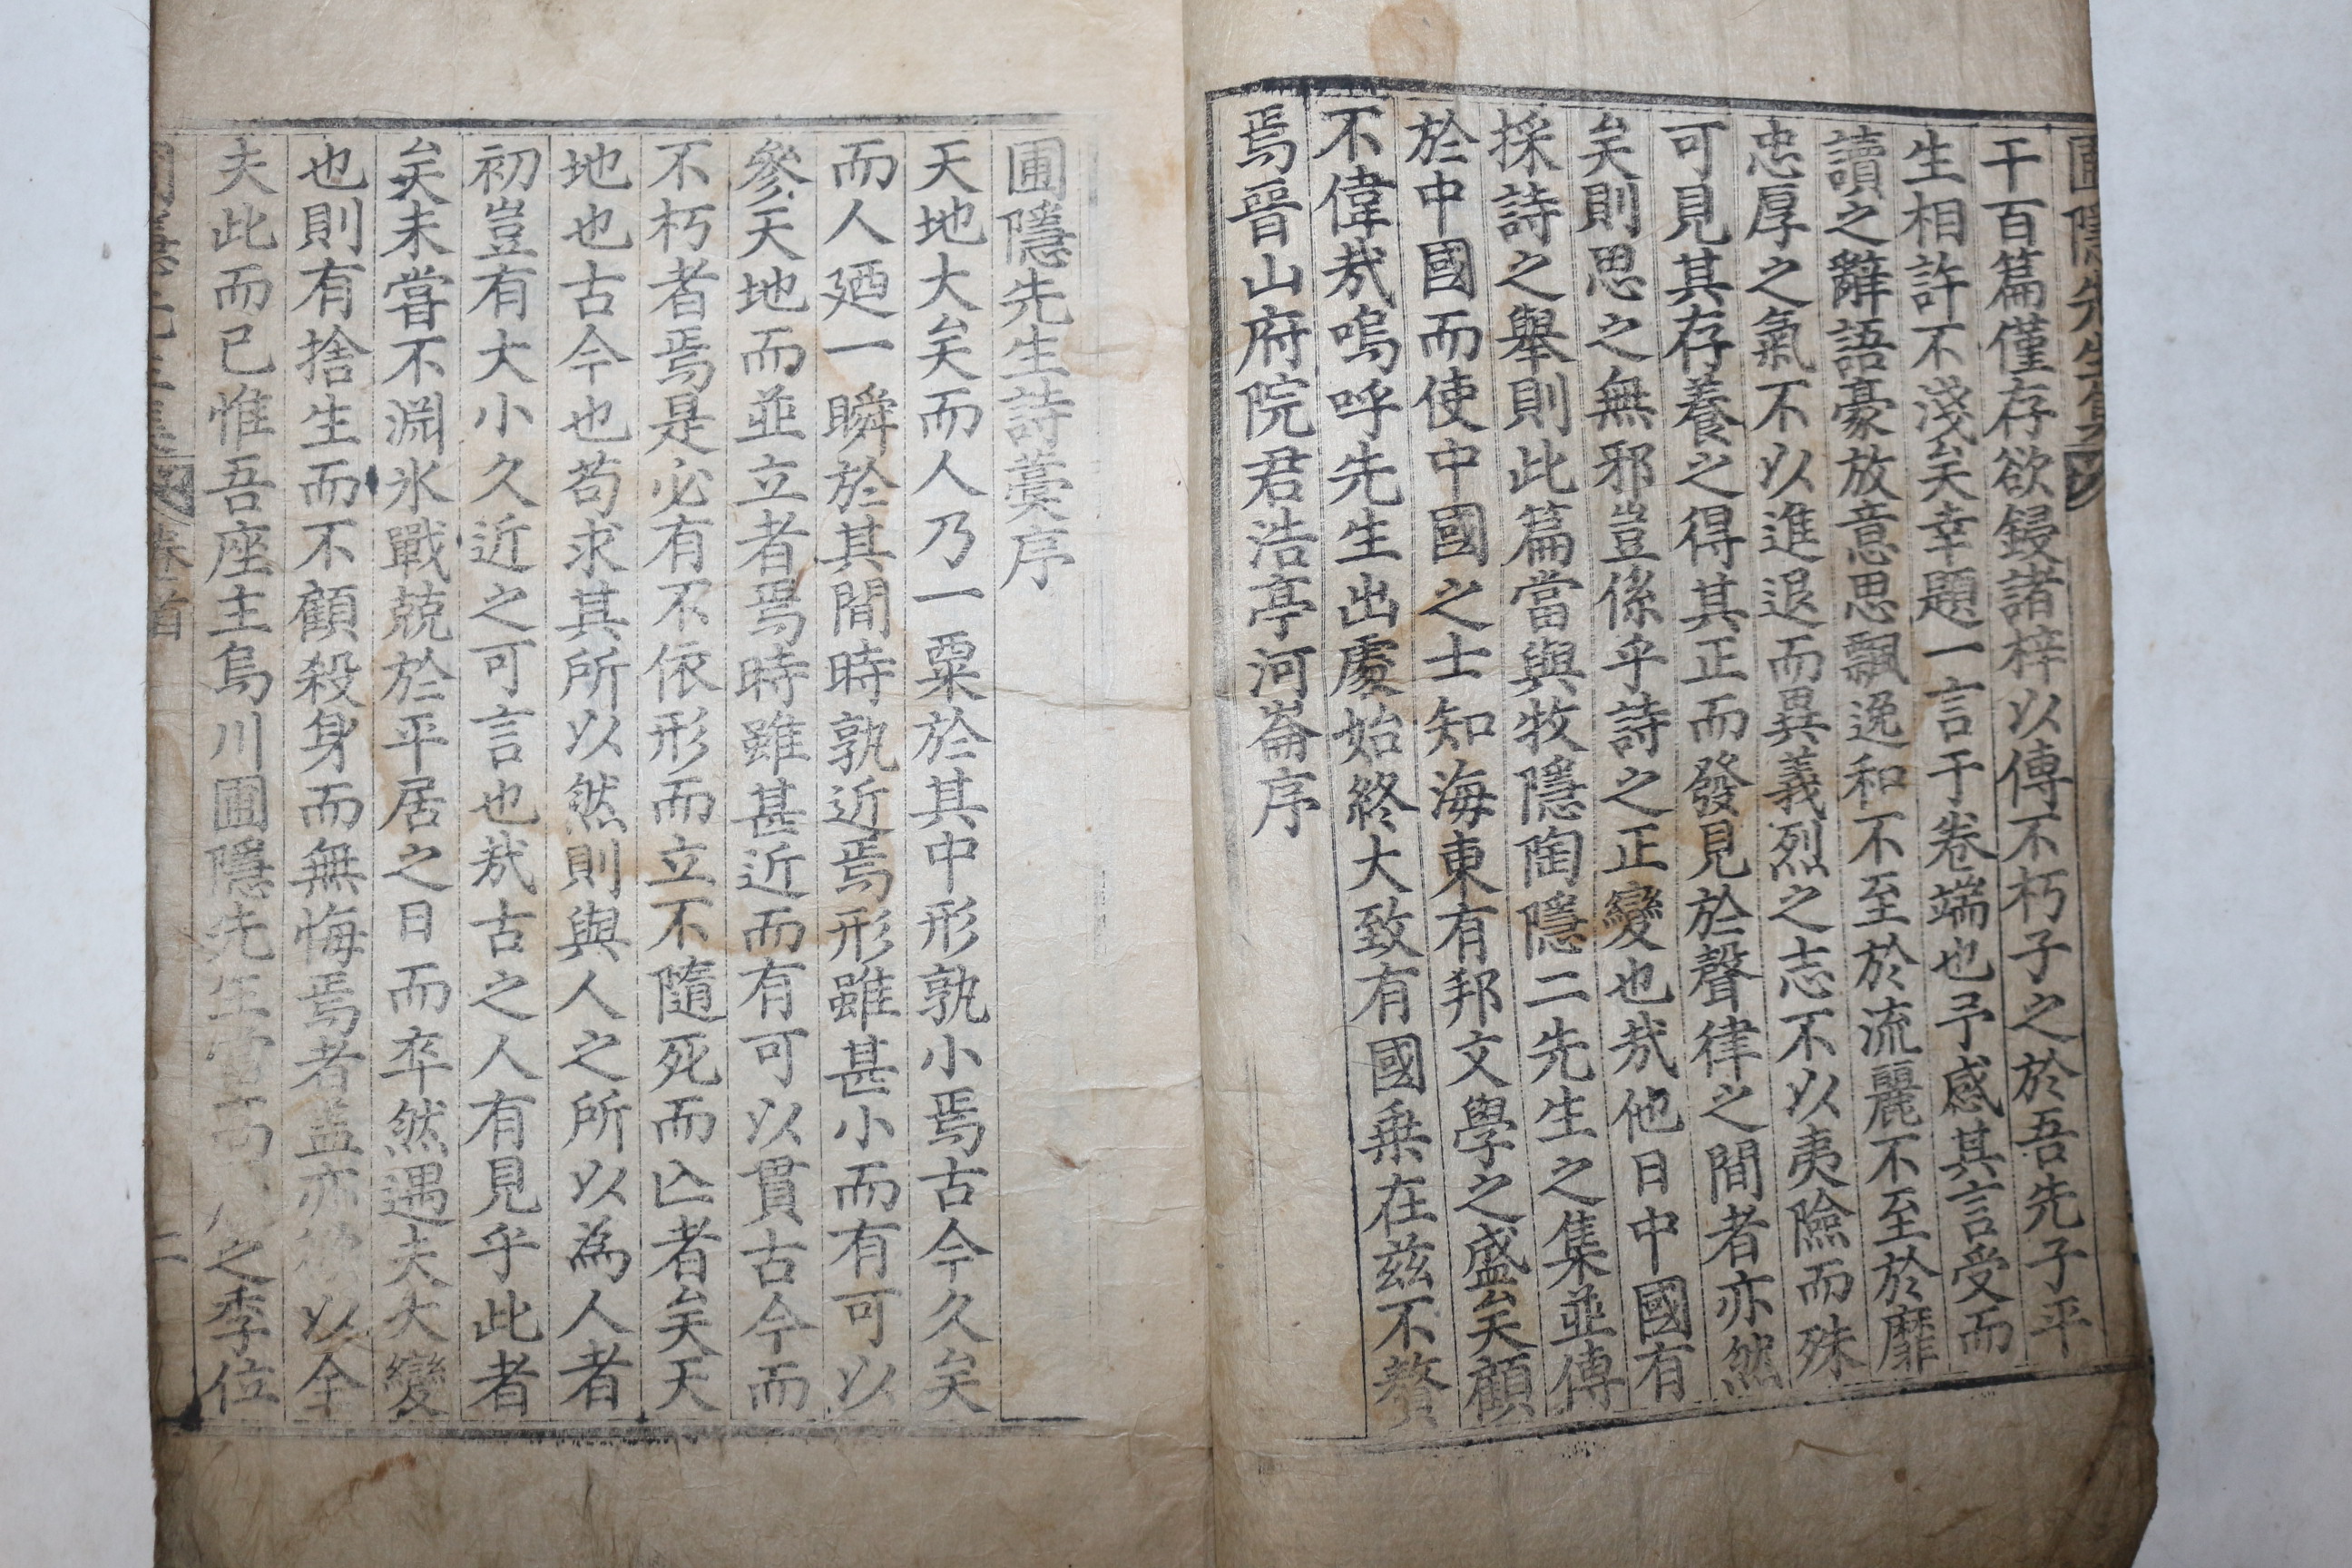 圃隱先生集
千百篇僅存欲鋟諸梓以傳不朽子之於吾先子平
生相許不淺矣幸題一言于卷端也予感其言受而
讀之辭語豪放意思飄逸和不至於流麗不至於靡
忠厚之氣不以進退而異義烈之志不以夷險而殊
可見其存養之得其正而發見於聲律之間者亦然
矣則思之無邪豈係乎詩之正變也㢤他日中國有
採詩之舉則此篇當與牧隱陶隱二先生之集並傳
於中國而使中國之士知海東有邦文學之盛矣顧
不偉㢤嗚呼先生出處始終大致有國乗在玆不贅
焉晉山府院君浩亭河崙序
圃隱先生詩藁序
天地大矣而人乃一粟於其中形孰小焉古今久矣
而人廼一瞬於其間時孰近焉形雖甚小而有可以
參天地而並立者焉時雖甚近而有可以貫古今而
不朽者焉是必有不依形而立不隨死而亾者矣天
地也古今也苟求其所以然則與人之所以為人者
初豈有大小久近之可言也㢤古之人有見乎此者
矣未甞不淵氷戰兢於平居之日而卒然遇夫大變
也則有捨生而不顧殺身而無悔焉者盖亦以全
夫此而已惟吾座主烏川圃隱先生之季位
卷首
二